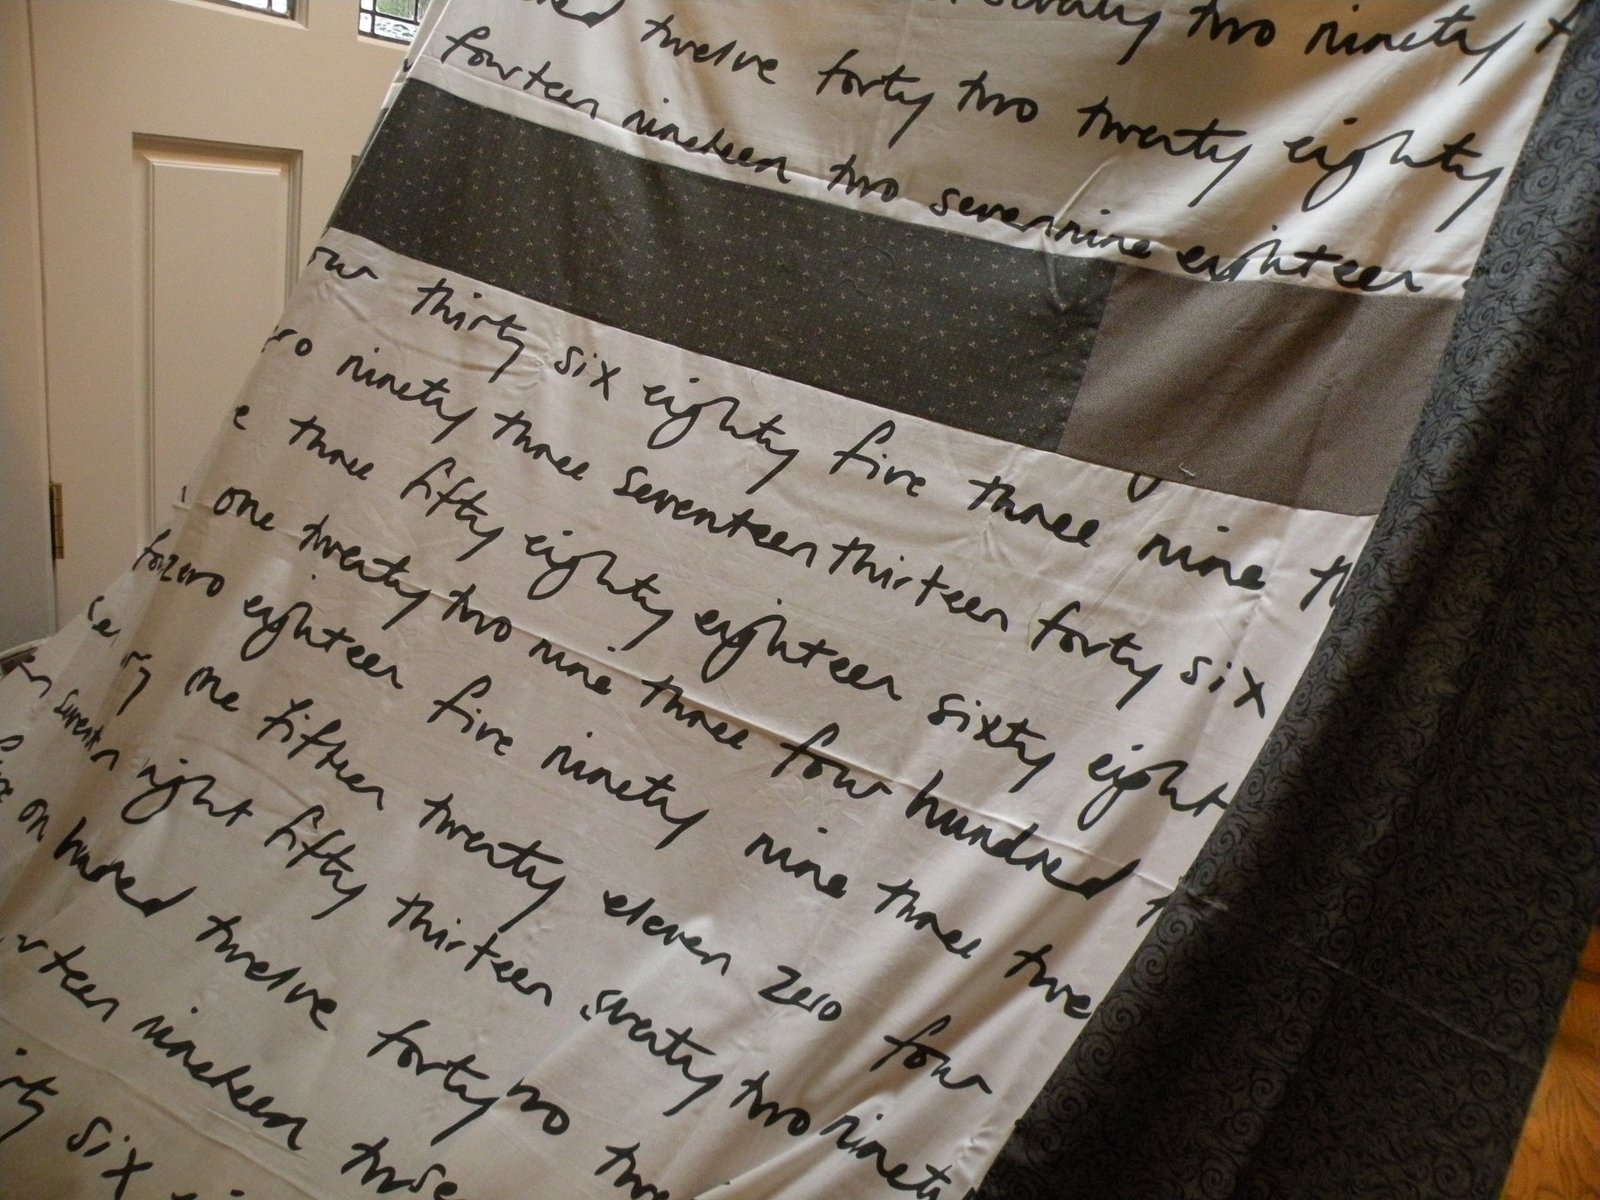 two ninety
twelve forty two twenty eighty
fourteen nineteen two seven nine eighteen
thirty six eighty five three nine th
ninety three seventeen thirteen forty six
e three fifty eighty eighteen sixty eight
one twenty two nine three four hundred t
zero eighteen five ninety nine three twe
one fifteen twenty eleven zero four
eight fifty thirteen seventy two ninety
on hundred twelve forty two twe
rteen nineteen two se
rty six